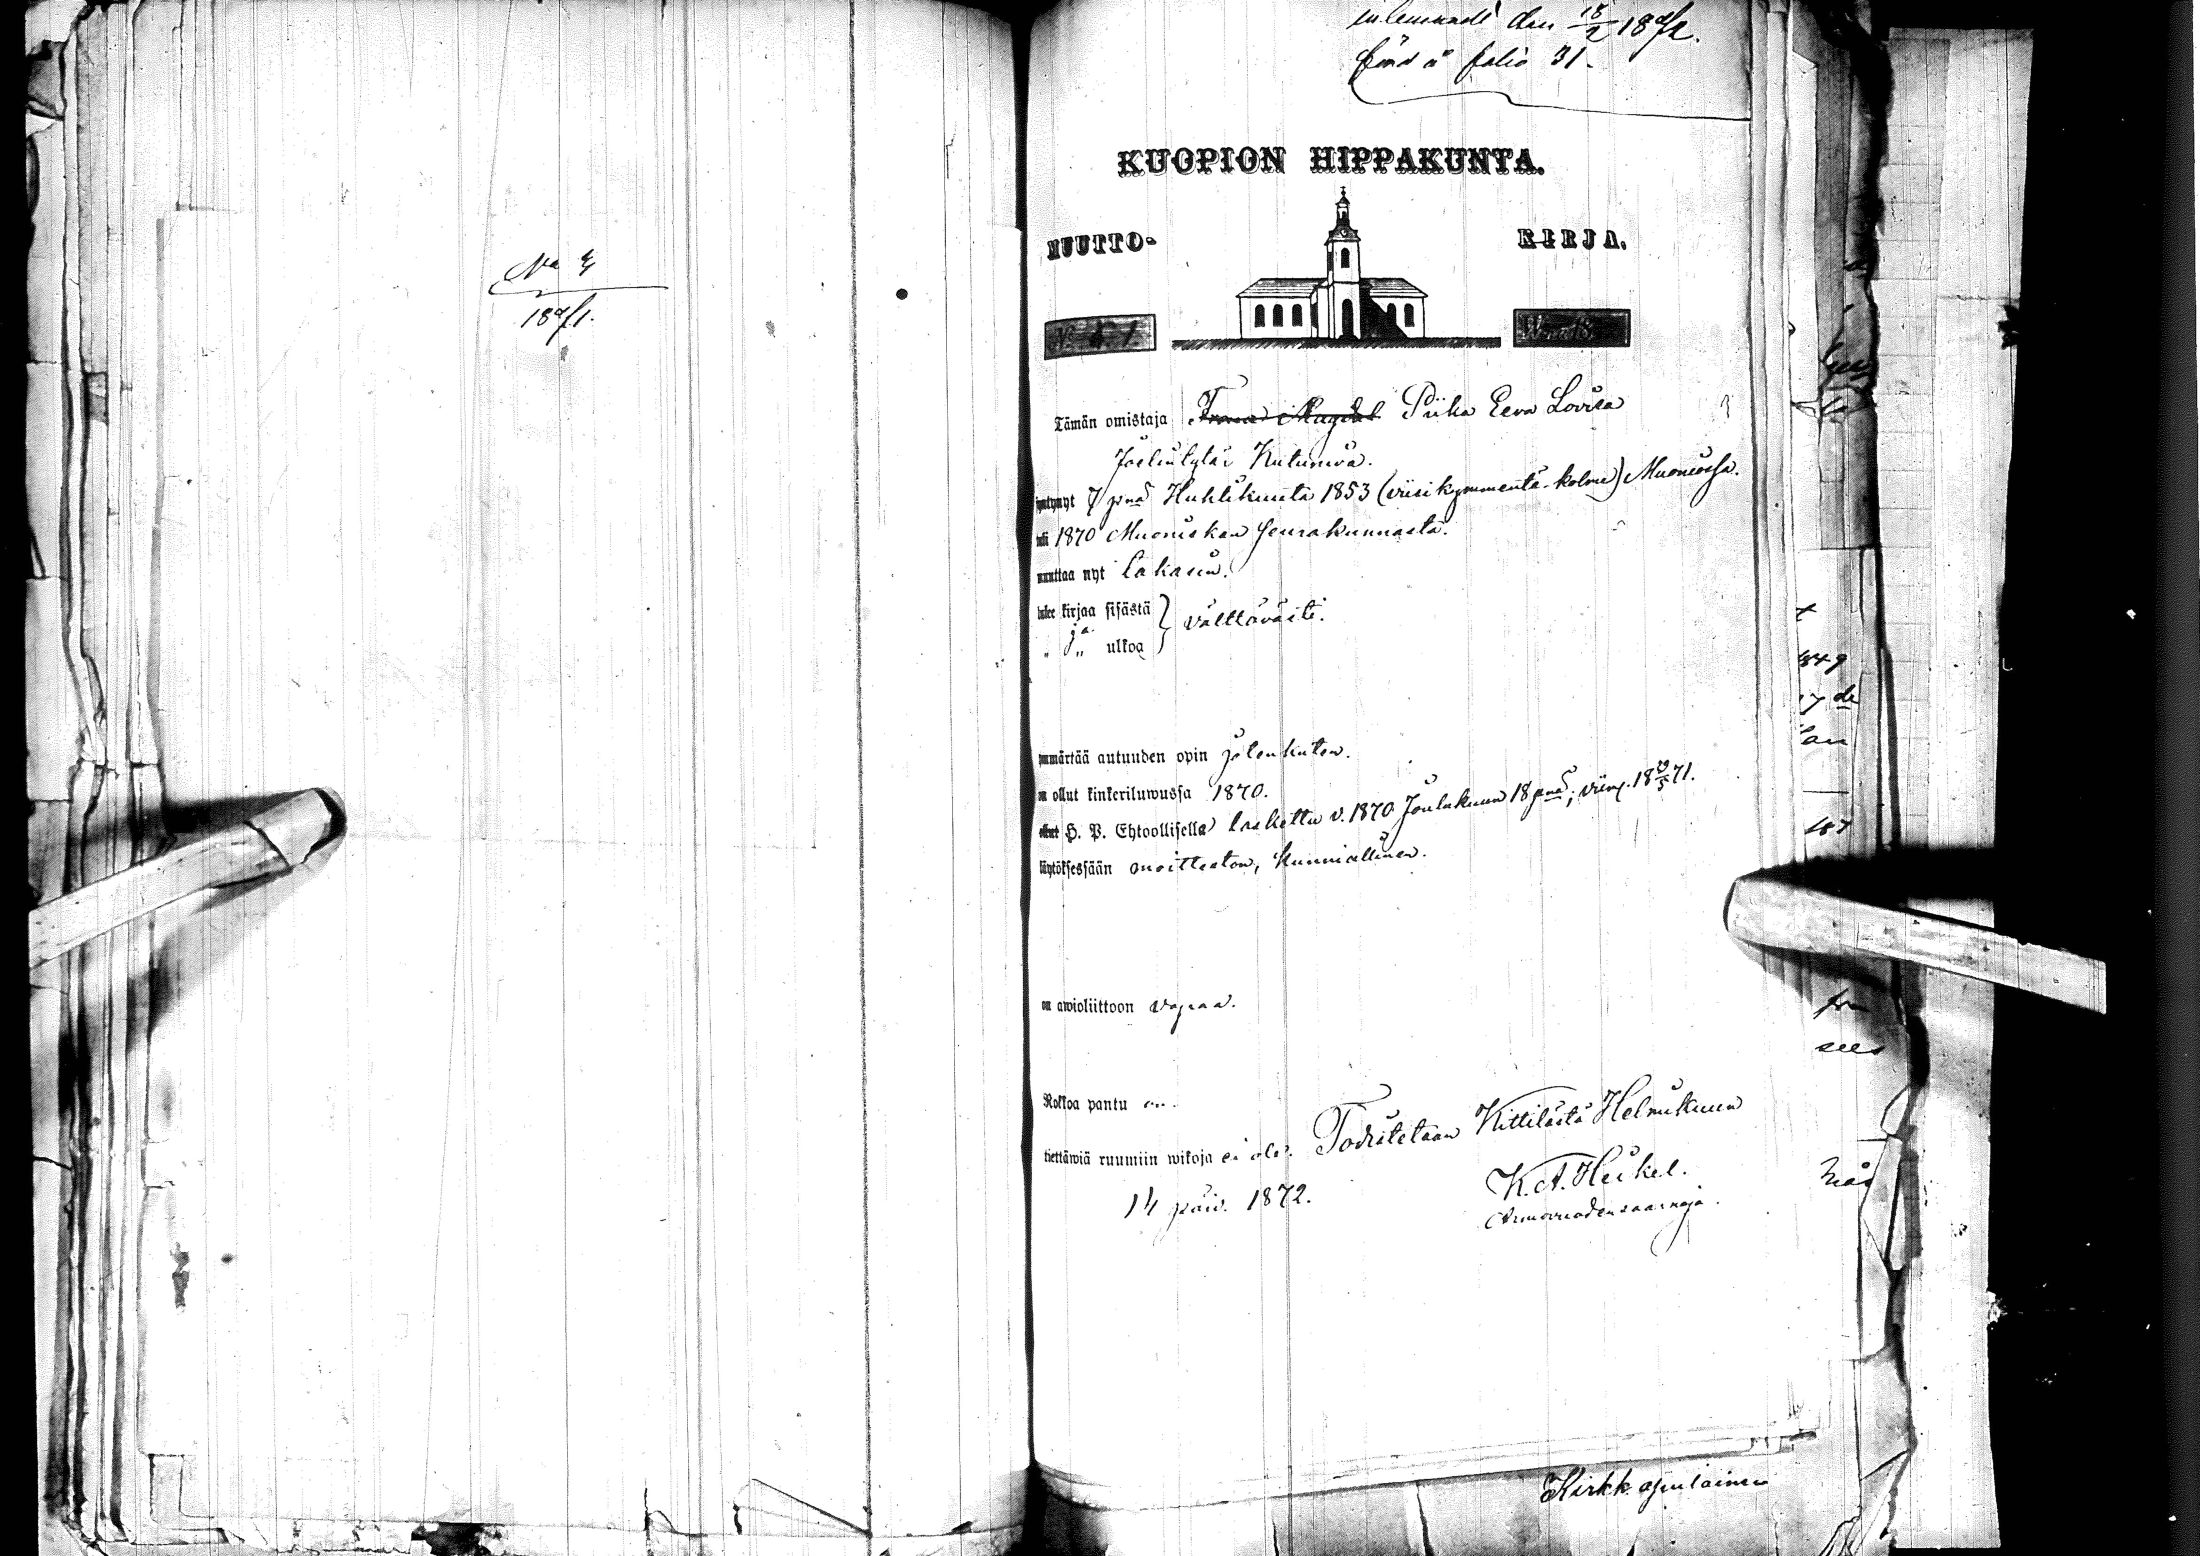 No 4
1871.
inlemnadt den 18/2 1872.
förd å folio 31.
KUOPION HIPPAKUNTA.
MUUTTO- KIRJA.
Tämän omistaja Piika Eeva Lovisa
Joelintytär Kutuniva.
syntynyt 7 pnä Huhtikuuta 1853 (viisikymmentä-kolme) Muoniossa.
tuli 1870 Muoniskan seurakunnasta.
muuttaa nyt takasin.
lukee kirjaa sisästä } välttävästi.
„ ja „ ulkoa
ymmärtää autuuden opin jotenkuten.
on ollut kinkeriluwussa 1870.
ollut H. P. Ehtoollisella laskettu v. 1870 Joulukuun 18 pnä; viim. 18 71.
käytöksessään moitteeton, kunniallinen.
on awioliittoon vapaa.
Rokkoa pantu on.
tiettäwiä ruumiin wikoja ei ole. Todistetaan Kittilästä Helmikuun
14 päiv. 1872. K. A. Heikel.
Armovuodensaarnaja.
Kirkk. apulainen